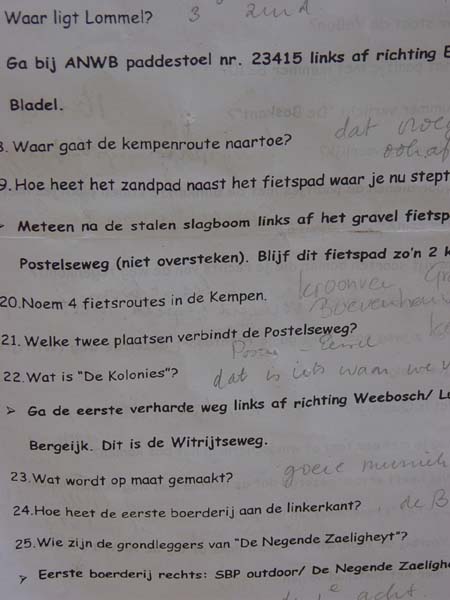 Waar ligt Lommel? 3 zuid
Ga bij ANWB paddestoel nr. 23415 links af richting E
Bladel.
8. Waar gaat de kempenroute naartoe? dat
9. Hoe heet het zandpad naast het fietspad waar je nu stept
Meteen na de stalen slagboom links af het gravel fietsp
Postelseweg (niet oversteken). Blijf dit fietspad zo'n 2 k
20. Noem 4 fietsroutes in de Kempen. kroonven
21. Welke twee plaatsen verbindt de Postelseweg?
Eersel
22. Wat is "De Kolonies"? dat is iets waar we
➢ Ga de eerste verharde weg links af richting Weebosch/ L
Bergeijk. Dit is de Witrijtseweg.
23. Wat wordt op maat gemaakt? goeie
24. Hoe heet de eerste boerderij aan de linkerkant? de B
25. Wie zijn de grondleggers van "De Negende Zaeligheyt"?
➢ Eerste boerderij rechts: SBP outdoor/ De Negende Zaelighe
acht.